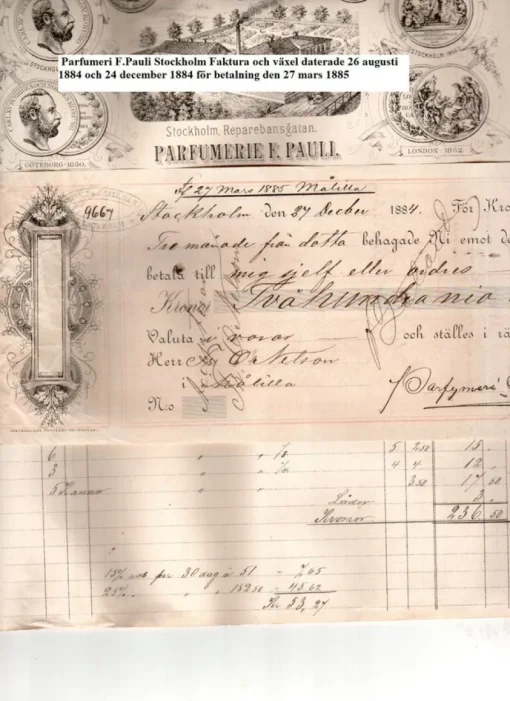 Parfumeri F.Pauli Stockholm Faktura och växel daterade 26 augusti
1884 och 24 december 1884 för betalning den 27 mars 1885
STOCKHOLM
GÖTEBORG-1860.
LONDON 1862.
Stockholm, Reparebansgatan.
PARFUMERIE F. PAULI.
27 Mars 1885 Målilla
9667
Stockholm den 27 Decber 1884. För Kro
Tre månade från detta behagade Ni emot de
betala till mig sjelf eller ordres
Kronor Tvåhundranio
Valuta i varor och ställes i rä
Herr
i Målilla
N:o
Parfymeri
6 " " 1/8 5 2,50 15 "
3 " " 1/4 4 4 12 "
5 Kannor " " 3,50 17 50
Lådor 3 "
Kronor 236 50
15% rab per 30 dag à 51 = 7,65
25% " " 182,50 = 45,62
Kr 53,27